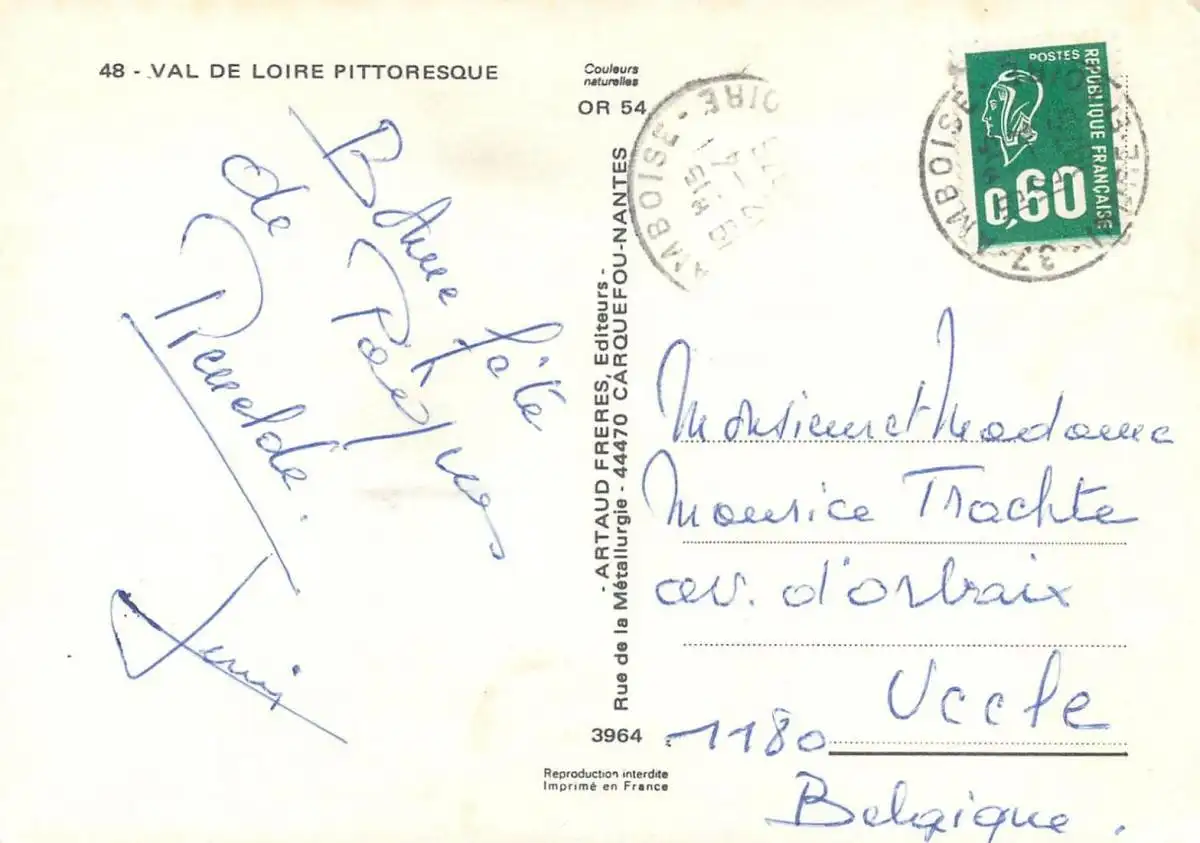 48 - VAL DE LOIRE PITTORESQUE
Couleurs
naturelles
OR 54
Bonne fête
de Pâques
Pierre
- ARTAUD FRERES, Editeurs -
Rue de la Métallurgie - 44470 CARQUEFOU-NANTES
3964
Reproduction interdite
Imprimé en France
POSTES
REPUBLIQUE FRANÇAISE
0,60
AMBOISE
37 AMBOISE
Monsieur et Madame
Maurice Trachte
av. d'orbaix
Uccle
1180
Belgique.